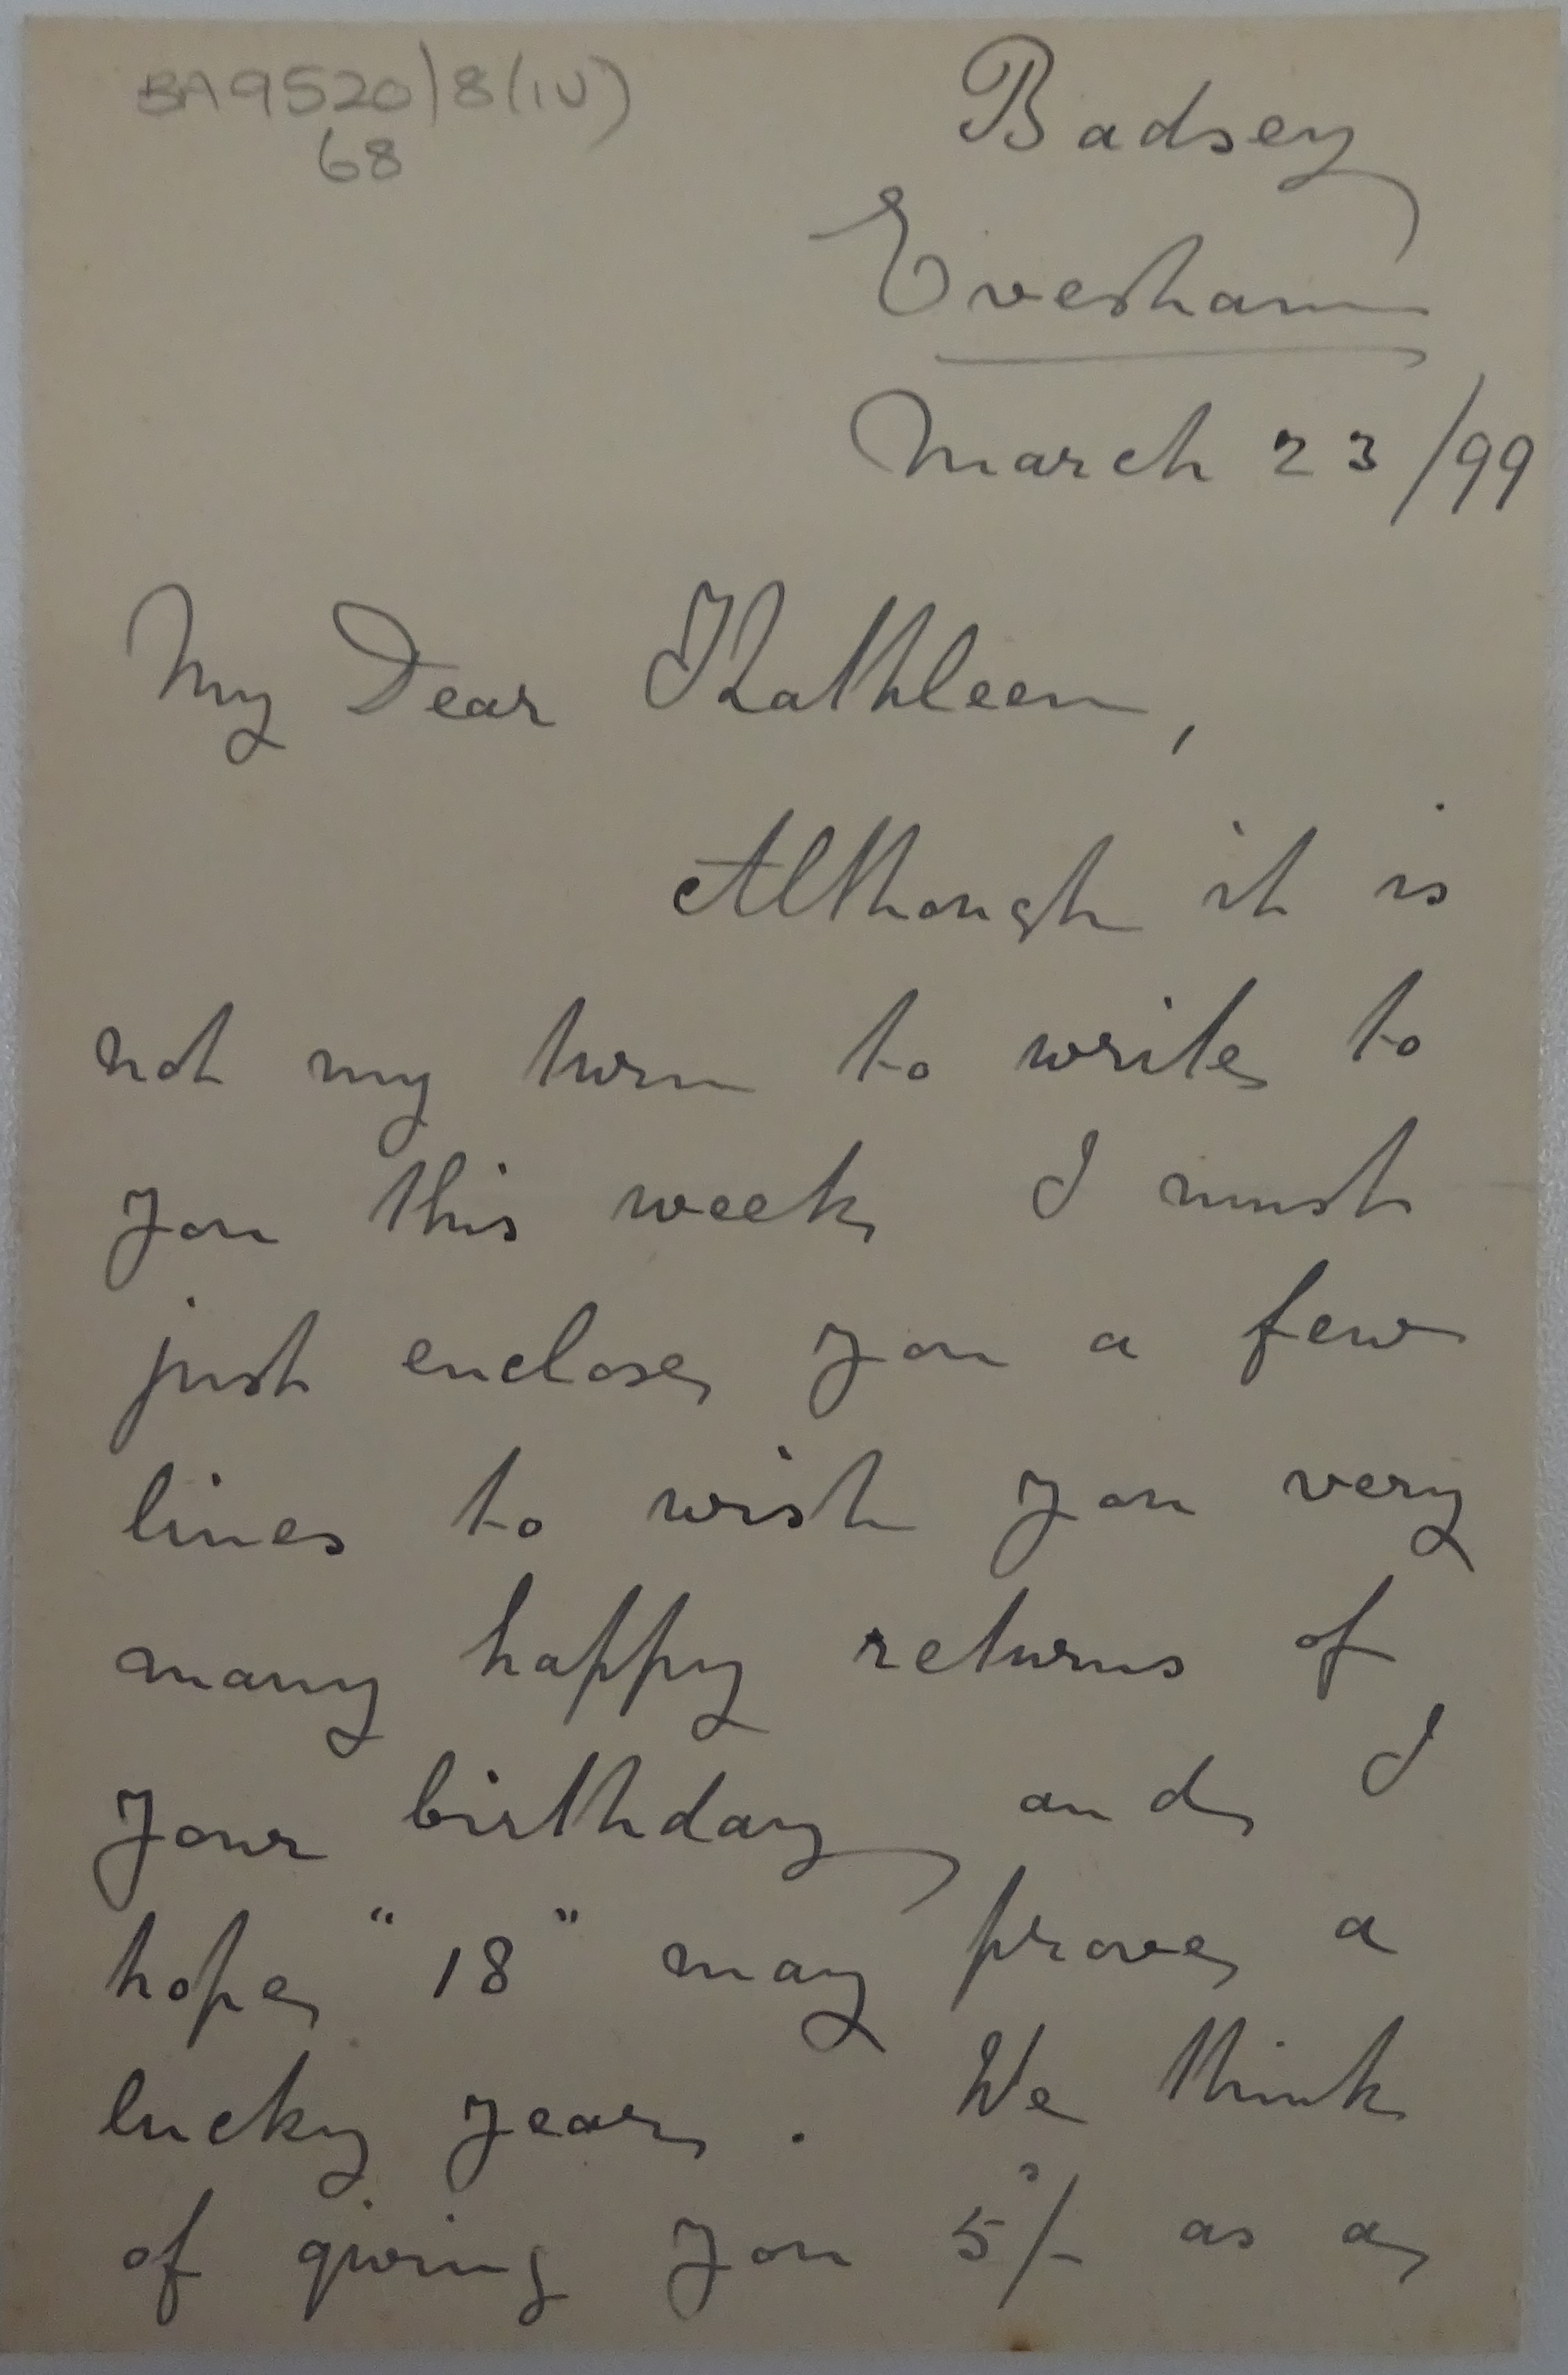 BA9520/8(iv)
68
Badsey
Evesham
March 23/99
My Dear Kathleen,
Although it is
not my turn to write to
you this week I must
just enclose you a few
lines to wish you very
many happy returns of
your birthday and I
hope "18" may prove a
lucky year. We think
of giving you 5s/- as a